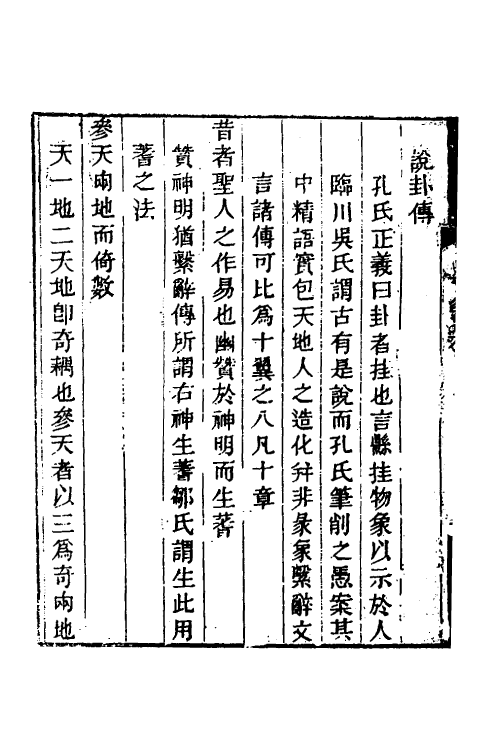 說卦傳
孔氏正義曰卦者挂也言縣挂物象以示於人
臨川吳氏謂古有是說而孔氏筆削之愚案其
中精語實包天地人之造化并非彖象繫辭文
言諸傳可比為十翼之八凡十章
昔者聖人之作易也幽贊於神明而生蓍
贊神明猶繫辭傳所謂右神生蓍鄒氏謂生此用
蓍之法
參天兩地而倚數
天一地二天地卽奇耦也參天者以三為奇兩地